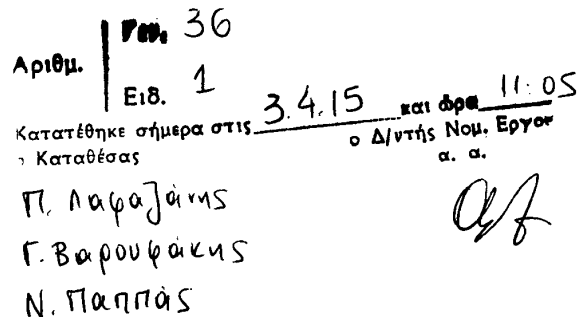 Αριθμ. Γεν. 36
Ειδ. 1
Κατατέθηκε σήμερα στις 3.4.15 και ώρα 11:05
ο Καταθέσας ο Δ/ντής Νομ. Εργου
α. α.
Π. Λαφαζάνης
Γ. Βαρουφάκης
Ν. Παππάς